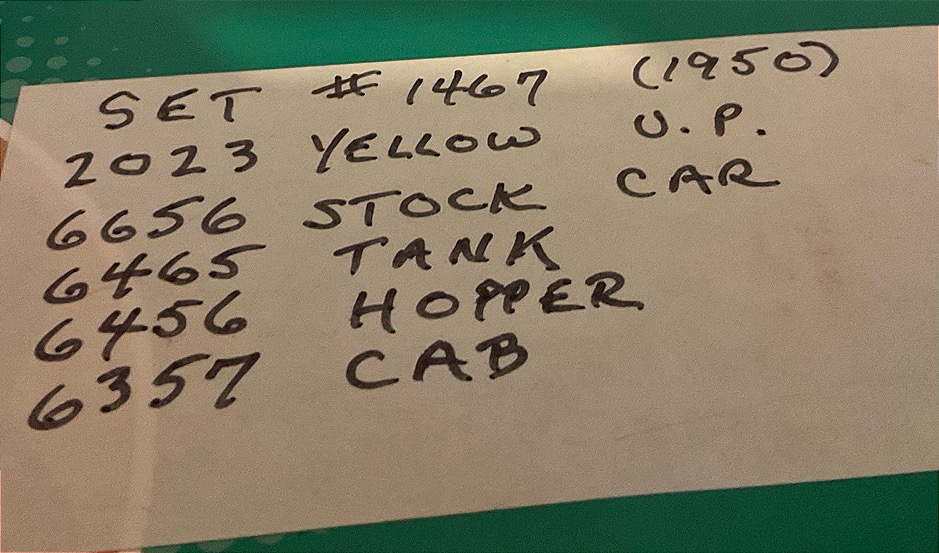 SET # 1467 (1950)
2023 YELLOW U.P.
6656 STOCK CAR
6465 TANK
6456 HOPPER
6357 CAB